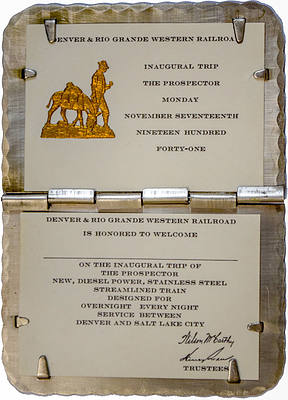 DENVER & RIO GRANDE WESTERN RAILROA
INAUGURAL TRIP
THE PROSPECTOR
MONDAY
NOVEMBER SEVENTEENTH
NINETEEN HUNDRED
FORTY-ONE
DENVER & RIO GRANDE WESTERN RAILROAD
IS HONORED TO WELCOME
ON THE INAUGURAL TRIP OF
THE PROSPECTOR
NEW, DIESEL POWER, STAINLESS STEEL
STREAMLINED TRAIN
DESIGNED FOR
OVERNIGHT EVERY NIGHT
SERVICE BETWEEN
DENVER AND SALT LAKE CITY
Wilson McCarthy
TRUSTEES